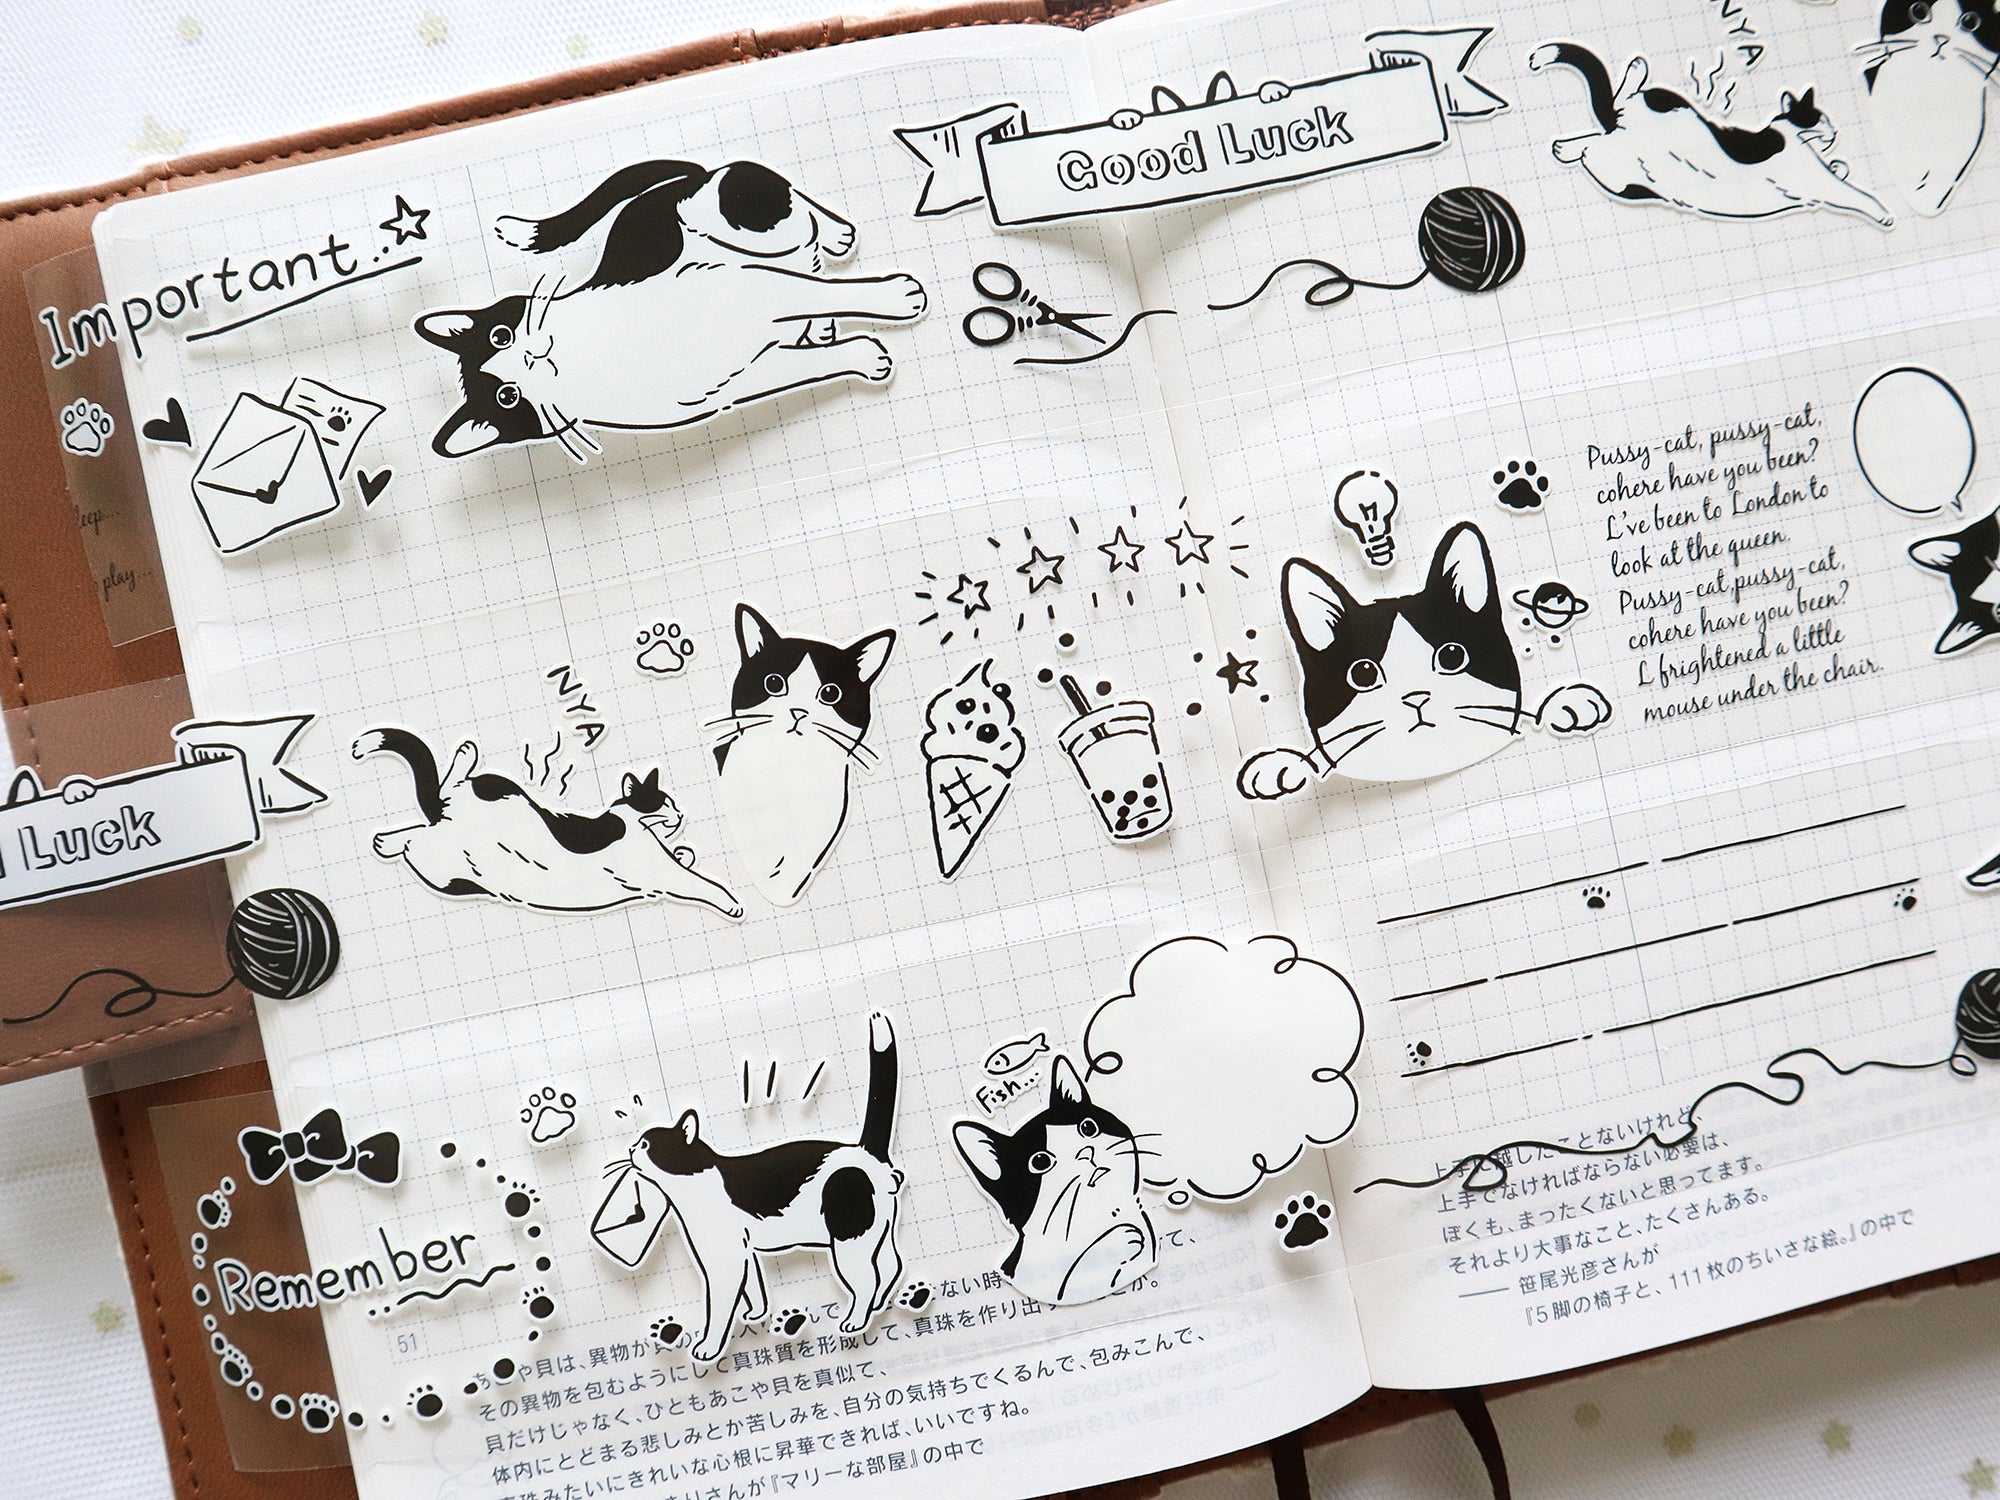 Good Luck
NYA
Important...
Pussy-cat, pussy-cat,
cohere have you been?
I've been to London to
look at the queen.
Pussy-cat,pussy-cat,
cohere have you been?
I frightened a little
mouse under the chair.
play...
NYA
Luck
Fish...
Remember
51
あこや貝は、異物が
その異物を包むようにして真珠質を形成して、真珠を作り出す
貝だけじゃなく、ひともあこや貝を真似て、
体内にとどまる悲しみとか苦しみを、自分の気持ちでくるんで、包みこんで、
真珠みたいにきれいな心根に昇華できれば、いいですね。
さんが『マリーな部屋』の中で
上手に越したことないけれど、
上手でなければならない必要は、
ぼくも、まったくないと思ってます。
それより大事なこと、たくさんある。
—— 笹尾光彦さんが
『5脚の椅子と、111枚のちいさな絵。』の中で